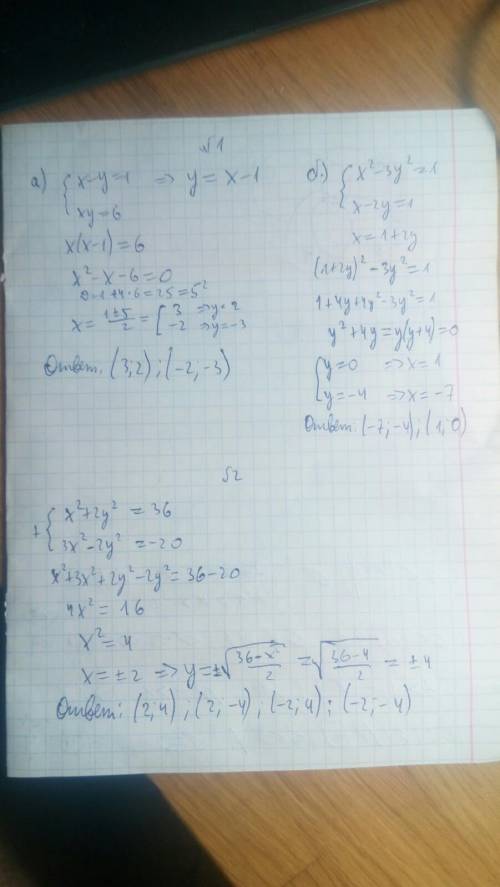 √1
а) { x-y=1 => y = x-1
xy=6
x(x-1)=6
x²-x-6=0
D=1+4·6=25=5²
x= 1±5/2 = [ 3 =>y=2
-2 =>y=-3
Ответ: (3;2);(-2;-3)
б.) { x²-3y²=1
x-2y=1
x=1+2y
(1+2y)²-3y²=1
1+4y+4y²-3y²=1
y²+4y=y(y+4)=0
{ y=0 =>x=1
y=-4 =>x=-7
Ответ: (-7;-4);(1;0)
√2
+ { x²+2y² = 36
3x²-2y² =-20
x²+3x²+2y²-2y²=36-20
4x²=16
x²=4
x=±2 => y=±√(36-x²/2) =√(36-4/2) = ±4
Ответ: (2;4);(2;-4);(-2;4);(-2;-4)